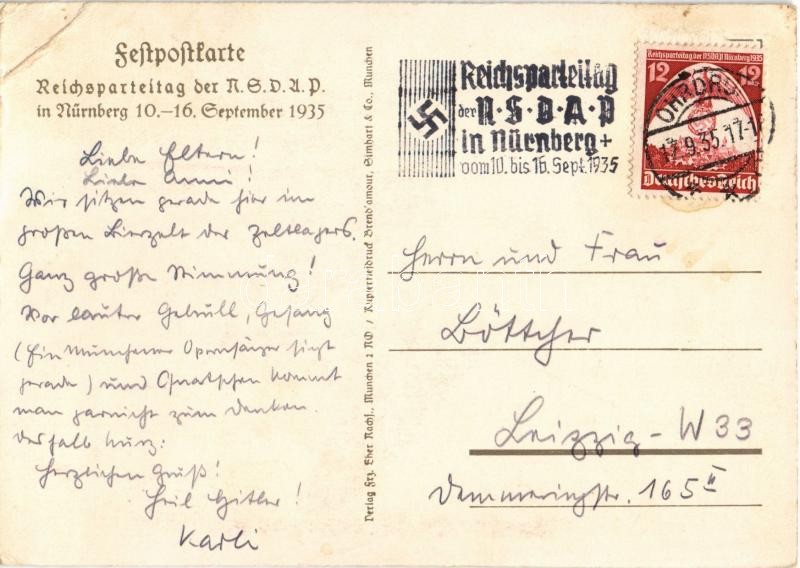 Festpostkarte
Reichsparteitag der N.S.D.A.P.
in Nürnberg 10.–16. September 1935
Liebe Eltern!
Liebe Anni!
Wir sitzen gerade hier im
großen Bierzelt des Zeltlagers.
Ganz große Stimmung!
Vor lauter Gebrüll, Gesang
(Ein Münchener Opernsänger singt
gerade) und Quatschen kommt
man garnicht zum Denken.
Deshalb kurz:
Herzlichen Gruß!
Heil Hitler!
Karli
Verlag Frz. Eher Nachf., München 2 NO / Kupfertiefdruck Brend'amour, Simhart & Co., München
Reichsparteitag
der N·S·D·A·P
in Nürnberg
vom 10. bis 16. Sept. 1935
Reichsparteitag der N.S.D.A.P. Nürnberg 1935
12 12
Deutsches Reich
OHRDRU
9.35.17-1
Herrn und Frau
Böttcher
Leipzig - W 33
Demmeringstr. 165 II